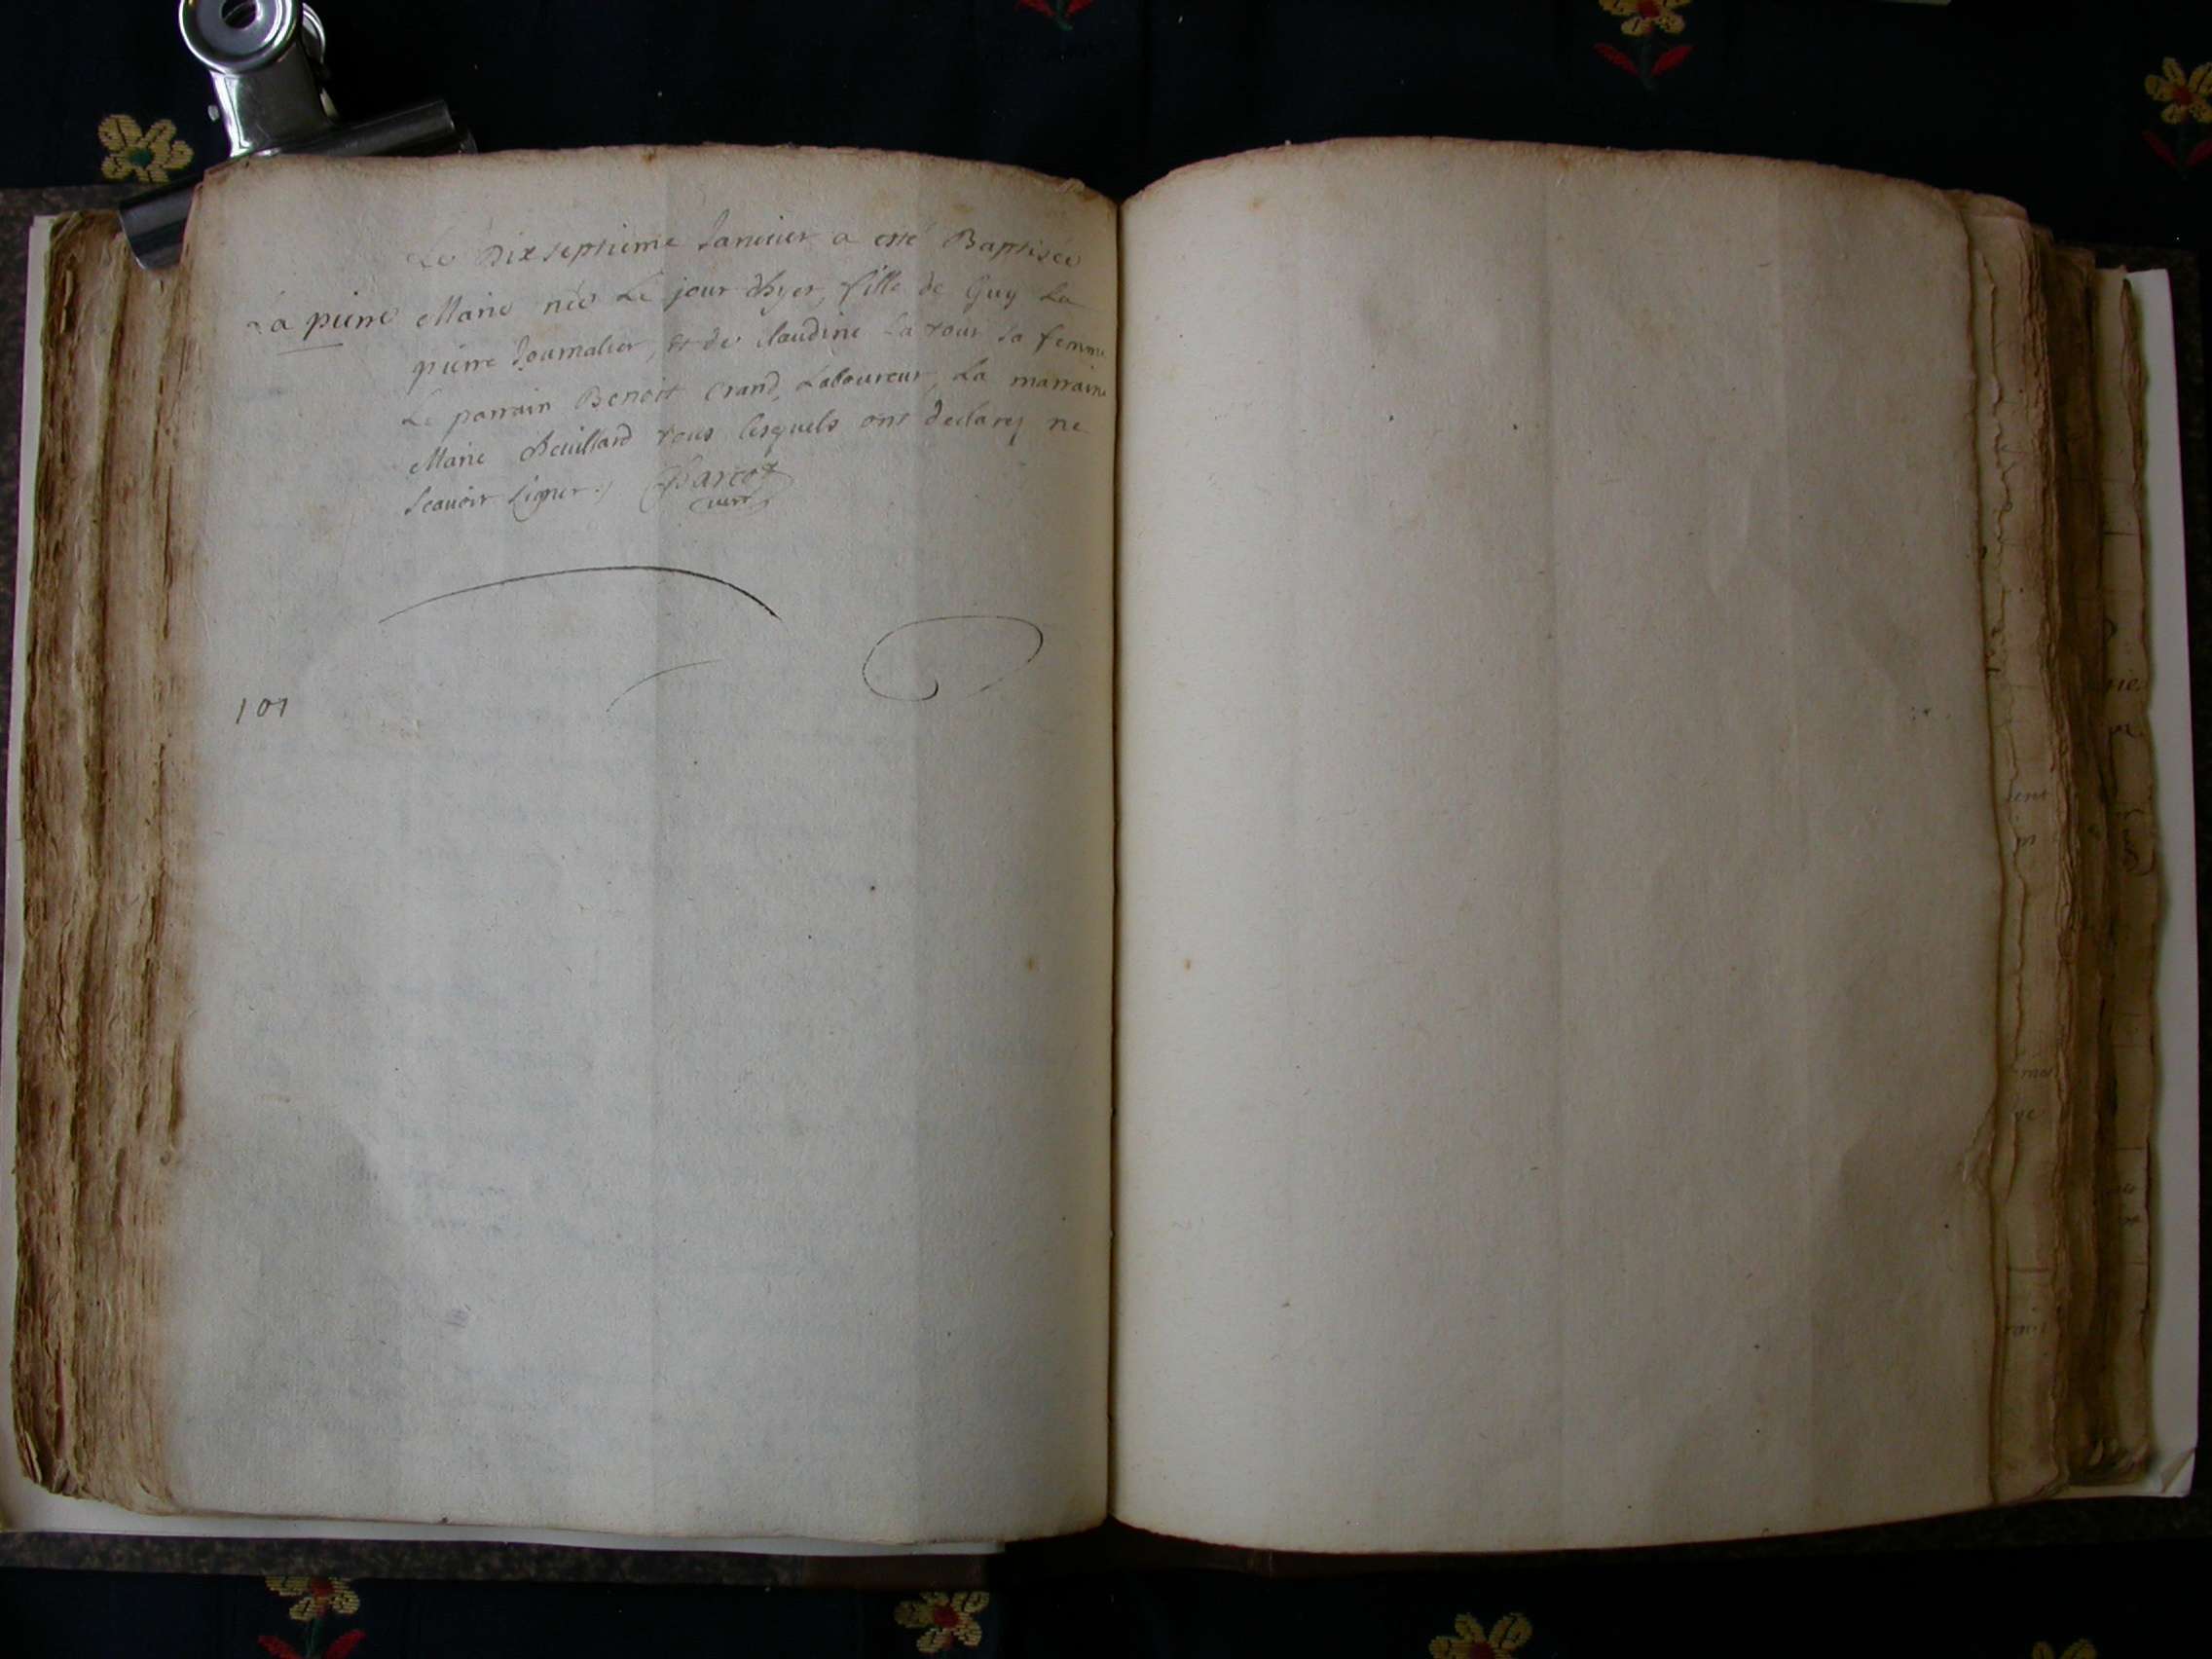 Le Dixseptieme Janvier a esté Baptisée
La pierre Marie née Le jour d'hyer, fille de Guy La
pierre Journalier, et de Claudine La tour sa femme
Le parrain Benoit Crand, Laboureur, La marraine
Marie tous lesquels ont declarez ne
scavoir signer.
101